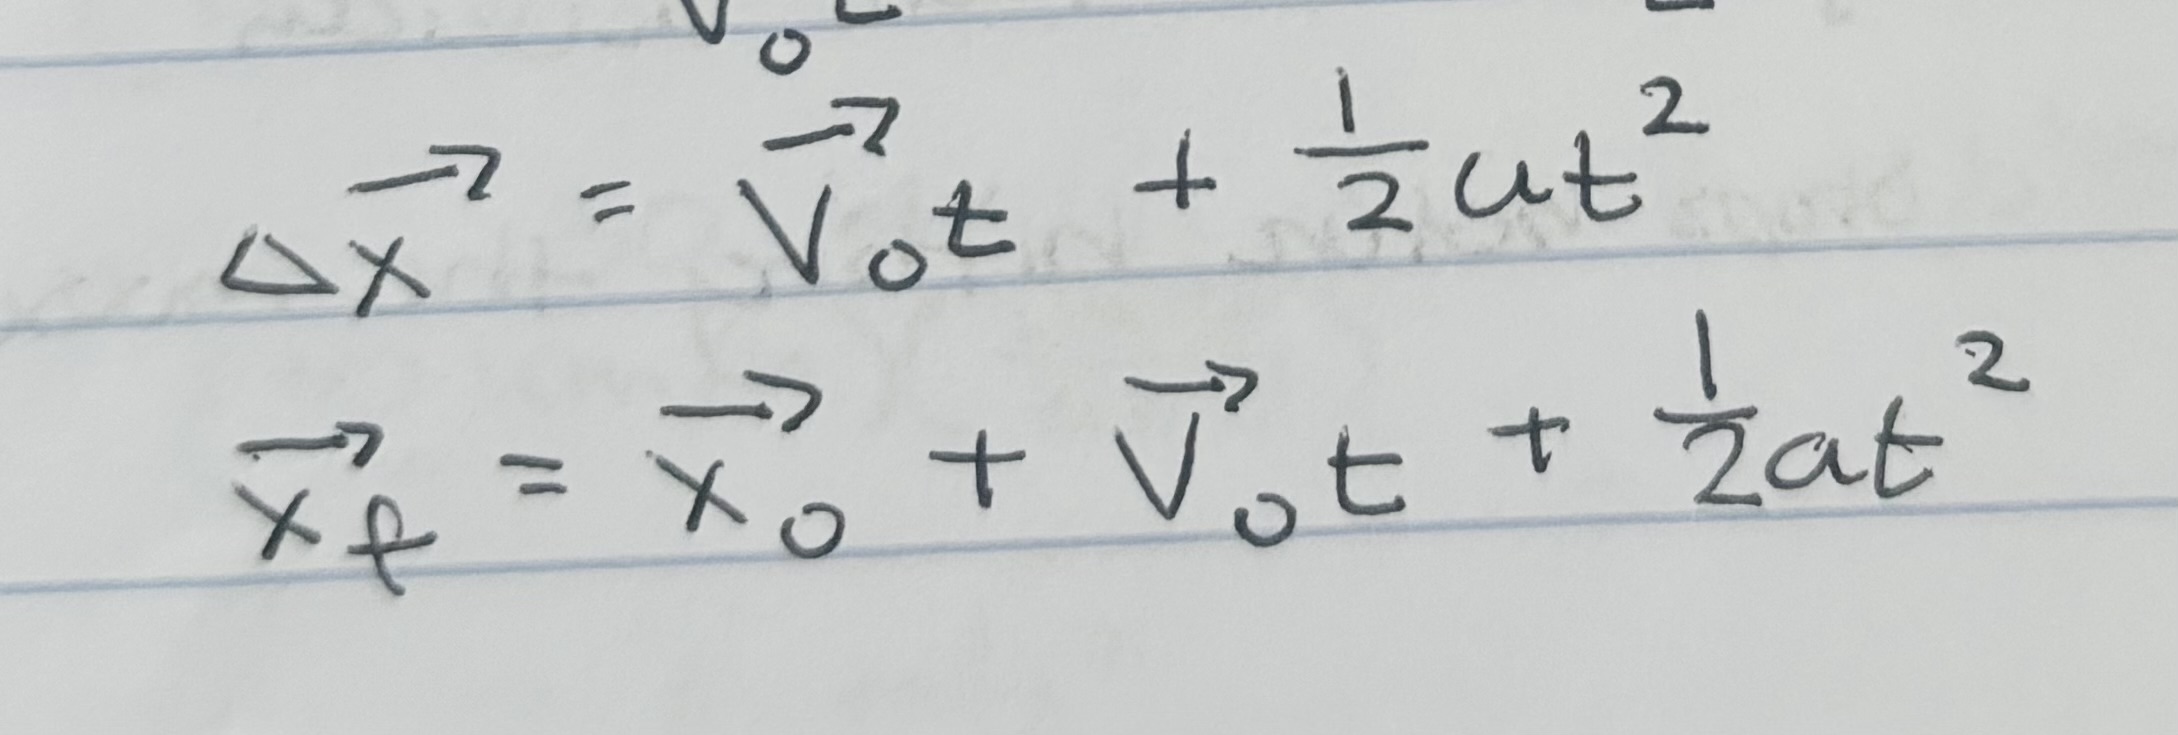 V₀t
Δx⃗ = V⃗₀t + ½at²
x⃗f = x⃗₀ + V⃗₀t + ½at²